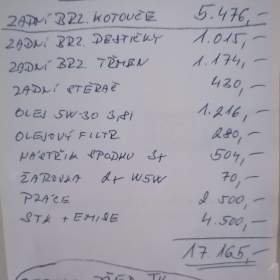 ZADNÍ BRZ. KOTOUČE 5.476,-
ZADNÍ BRZ. DESTIČKY 1.015,-
ZADNÍ BRZ. TŘMEN 1.174,-
ZADNÍ STĚRAČ 430,-
OLEJ 5W-30 3,8l 1.216,-
OLEJOVÝ FILTR 280,-
NÁSTŘIK SPODKU 3x 504,-
ŽÁROVKA 2x W5W 70,-
PRÁCE 2.500,-
STK + EMISE 4.500,-
17.165,-